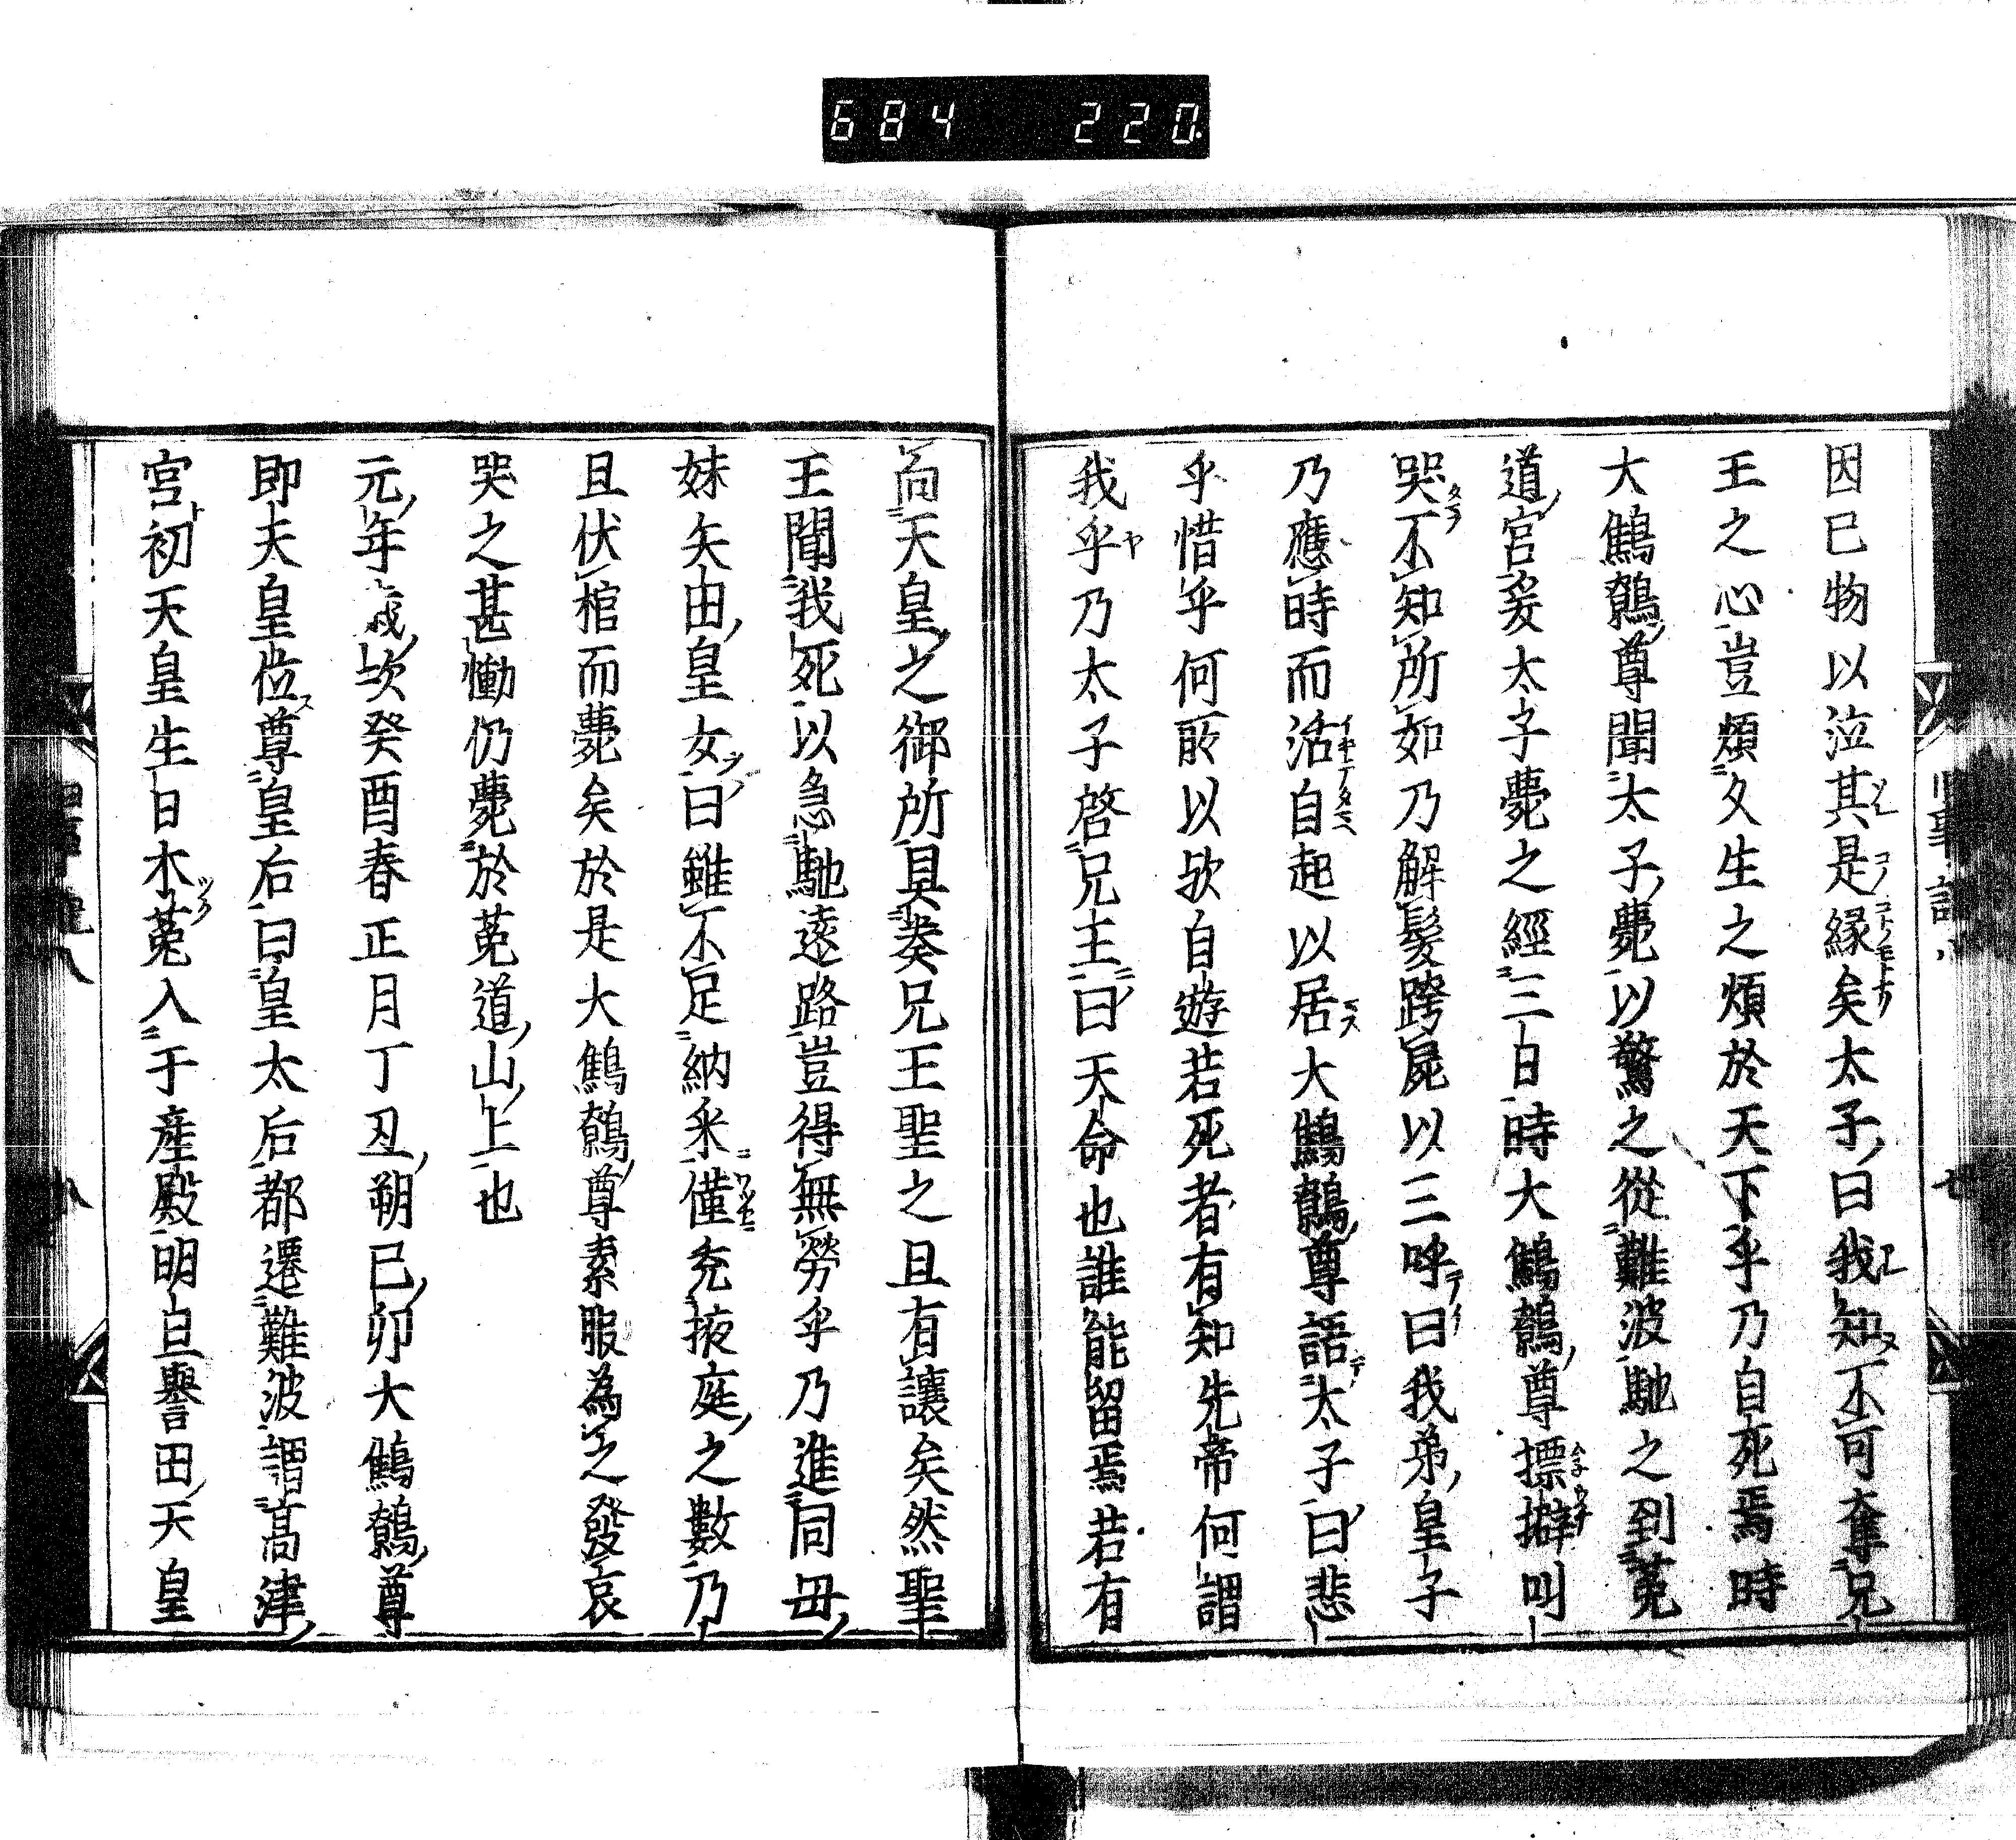 684 220
因已物以泣其是縁矣太子曰我知不可奪兄
王之心豈煩久生之煩於天下乎乃自死焉時
大鷦鷯尊聞太子薨以驚之從難波馳之到菟
道宮爰太子薨之經三日時大鷦鷯尊摽擗叫
哭不知所如乃解髮跨屍以三呼曰我弟皇子
乃應時而活自起以居大鷦鷯尊語太子曰悲
乎惜乎何所以欤自遊若死者有知先帝何謂
我乎乃太子啓兄王曰天命也誰能留焉若有
向天皇之御所具奏兄王聖之且有讓矣然聖
王聞我死以急馳遠路豈得無勞乎乃進同毋
妹矢田皇女曰雖不足納釆僅充掖庭之數乃
且伏棺而薨矣於是大鷦鷯尊素服為之發哀
哭之甚慟仍薨於菟道山上也
元年歳次癸酉春正月丁丑朔已卯大鷦鷯尊
即天皇位尊皇后曰皇太后都遷難波謂髙津
宮初天皇生日木菟入于産殿明旦譽田天皇